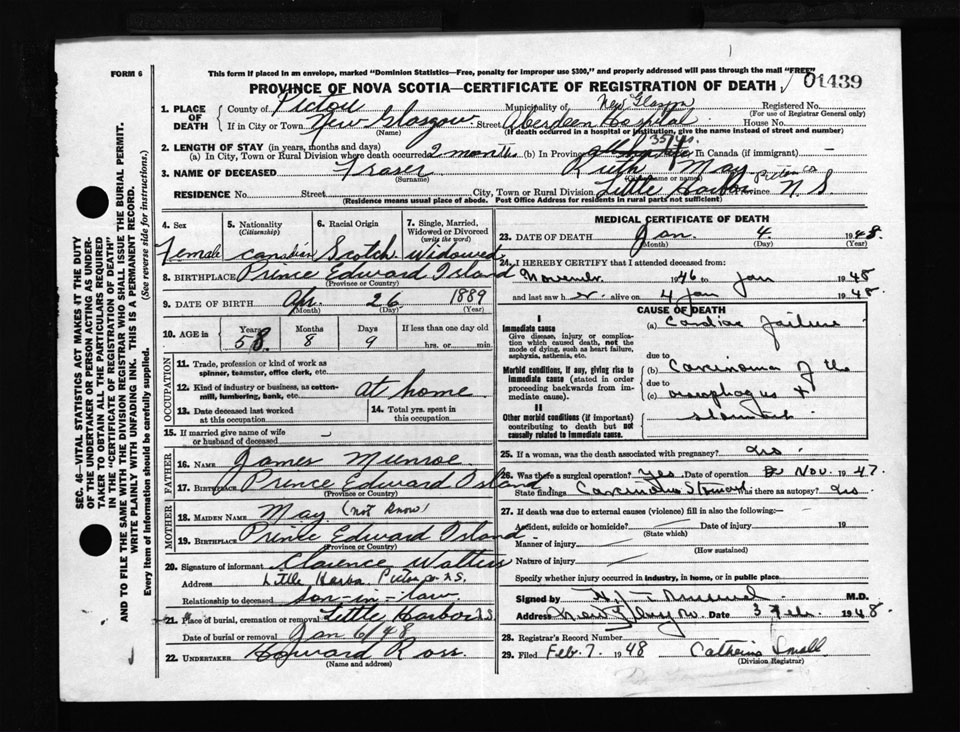 FORM 6
This form if placed in an envelope, marked "Dominion Statistics—Free, penalty for improper use $300," and properly addressed will pass through the mail "FREE"
PROVINCE OF NOVA SCOTIA—CERTIFICATE OF REGISTRATION OF DEATH
01439
1. PLACE OF DEATH
County of Pictou Municipality of New Glasgow Registered No.
(For use of Registrar General only)
If in City or Town New Glasgow Street Aberdeen Hospital House No.
(If death occurred in a hospital or institution, give the name instead of street and number)
2. LENGTH OF STAY (in years, months and days)
(a) In City, Town or Rural Division where death occurred 2 months (b) In Province 35 yrs. In Canada (if immigrant) —
3. NAME OF DECEASED Fraser Ruth May
(Surname)
RESIDENCE No. Street City, Town or Rural Division Little Harbor Pictou Co Province N S.
(Residence means usual place of abode. Post Office Address for residents in rural parts not sufficient)
4. Sex Female
5. Nationality (Citizenship) Canadian
6. Racial Origin Scotch
7. Single, Married, Widowed or Divorced (write the word) Widowed
8. BIRTHPLACE Prince Edward Island
(Province or Country)
9. DATE OF BIRTH Apr. 26 1889
(Month) (Day) (Year)
10. AGE in Years 58 Months 8 Days 9 If less than one day old
hrs. or min.
OCCUPATION
11. Trade, profession or kind of work as spinner, teamster, office clerk, etc.
12. Kind of industry or business, as cotton-mill, lumbering, bank, etc. at home
13. Date deceased last worked at this occupation
14. Total yrs. spent in this occupation
15. If married give name of wife or husband of deceased
FATHER
16. NAME James Munroe
17. BIRTHPLACE Prince Edward Island
(Province or Country)
MOTHER
18. MAIDEN NAME May (not know)
19. BIRTHPLACE Prince Edward Island
(Province or Country)
20. Signature of informant Clarence Watters
Address Little Harbor Pictou Co N.S.
Relationship to deceased son-in-law
21. Place of burial, cremation or removal Little Harbor N.S.
Date of burial or removal Jan 6/48
22. UNDERTAKER Howard Ross
(Name and address)
MEDICAL CERTIFICATE OF DEATH
23. DATE OF DEATH Jan. 4 1948.
(Month) (Day) (Year)
24. I HEREBY CERTIFY that I attended deceased from:
November 1946 to Jan 1948
and last saw her alive on 4 Jan 1948.
CAUSE OF DEATH
I
Immediate cause
Give disease, injury or complication which caused death, not the mode of dying, such as heart failure, asphyxia, asthenia, etc.
(a) Cardiac failure
due to
Morbid conditions, if any, giving rise to immediate cause (stated in order proceeding backwards from immediate cause).
(b) Carcinoma of the
due to
(c) oesophagus +
stomach
II
Other morbid conditions (if important) contributing to death but not causally related to immediate cause.
25. If a woman, was the death associated with pregnancy? no
26. Was there a surgical operation? Yes Date of operation Nov. 1947.
State findings Carcinoma Stomach Was there an autopsy? no
27. If death was due to external causes (violence) fill in also the following:—
Accident, suicide or homicide? Date of injury 19
(State which)
Manner of injury
(How sustained)
Nature of injury
Specify whether injury occurred in industry, in home, or in public place
Signed by M.D.
Address New Glasgow Date 3 Feb. 1948.
28. Registrar's Record Number
29. Filed Feb. 7. 1948 Catherine Small
(Division Registrar)
SEC. 46—VITAL STATISTICS ACT MAKES IT THE DUTY
OF THE UNDERTAKER OR PERSON ACTING AS UNDERTAKER TO OBTAIN ALL THE PARTICULARS REQUIRED
IN THE "CERTIFICATE OF REGISTRATION OF DEATH"
AND TO FILE THE SAME WITH THE DIVISION REGISTRAR WHO SHALL ISSUE THE BURIAL PERMIT.
WRITE PLAINLY WITH UNFADING INK. THIS IS A PERMANENT RECORD.
Every item of Information should be carefully supplied. (See reverse side for instructions.)